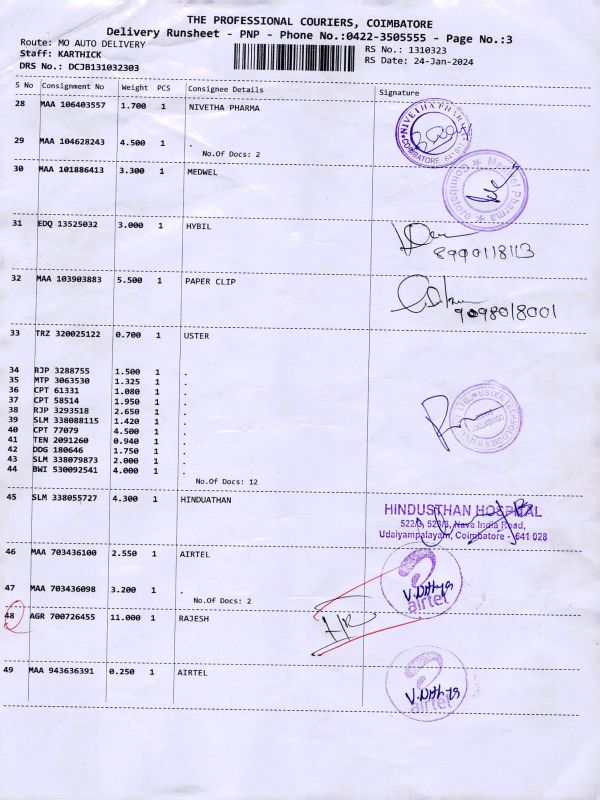 THE PROFESSIONAL COURIERS, COIMBATORE
Delivery Runsheet - PNP - Phone No.:0422-3505555 - Page No.:3
Route: MO AUTO DELIVERY
RS No.: 1310323
Staff: KARTHICK
RS Date: 24-Jan-2024
DRS No.: DCJB131032303
S No Consignment No Weight PCS Consignee Details Signature
28 MAA 106403557 1.700 1 NIVETHA PHARMA
NIVETHA PHARMA
COIMBATORE
29 MAA 104628243 4.500 1 .
No.Of Docs: 2
30 MAA 101886413 3.300 1 MEDWEL
Pharma
Coimbatore
31 EDQ 13525032 3.000 1 HYBIL
32 MAA 103903883 5.500 1 PAPER CLIP
33 TRZ 320025122 0.700 1 USTER
34 RJP 3288755 1.500 1 .
35 MTP 3063530 1.325 1 .
36 CPT 61331 1.080 1 .
37 CPT 58514 1.950 1 .
38 RJP 3293518 2.650 1 .
39 SLM 338088115 1.420 1 .
40 CPT 77079 4.500 1 .
41 TEN 2091260 0.940 1 .
42 DDG 180646 1.750 1 .
43 SLM 338079873 2.000 1 .
44 BWI 530092541 4.000 1 .
USTER TECHNOLOGIES
No.Of Docs: 12
45 SLM 338055727 4.300 1 HINDUATHAN
HINDUSTHAN HOSPITAL
Nava India Road,
Udaiyampalayam, Coimbatore - 641 028
46 MAA 703436100 2.550 1 AIRTEL
47 MAA 703436098 3.200 1 .
No.Of Docs: 2
airtel
48 AGR 700726455 11.000 1 RAJESH
49 MAA 943636391 0.250 1 AIRTEL
airtel